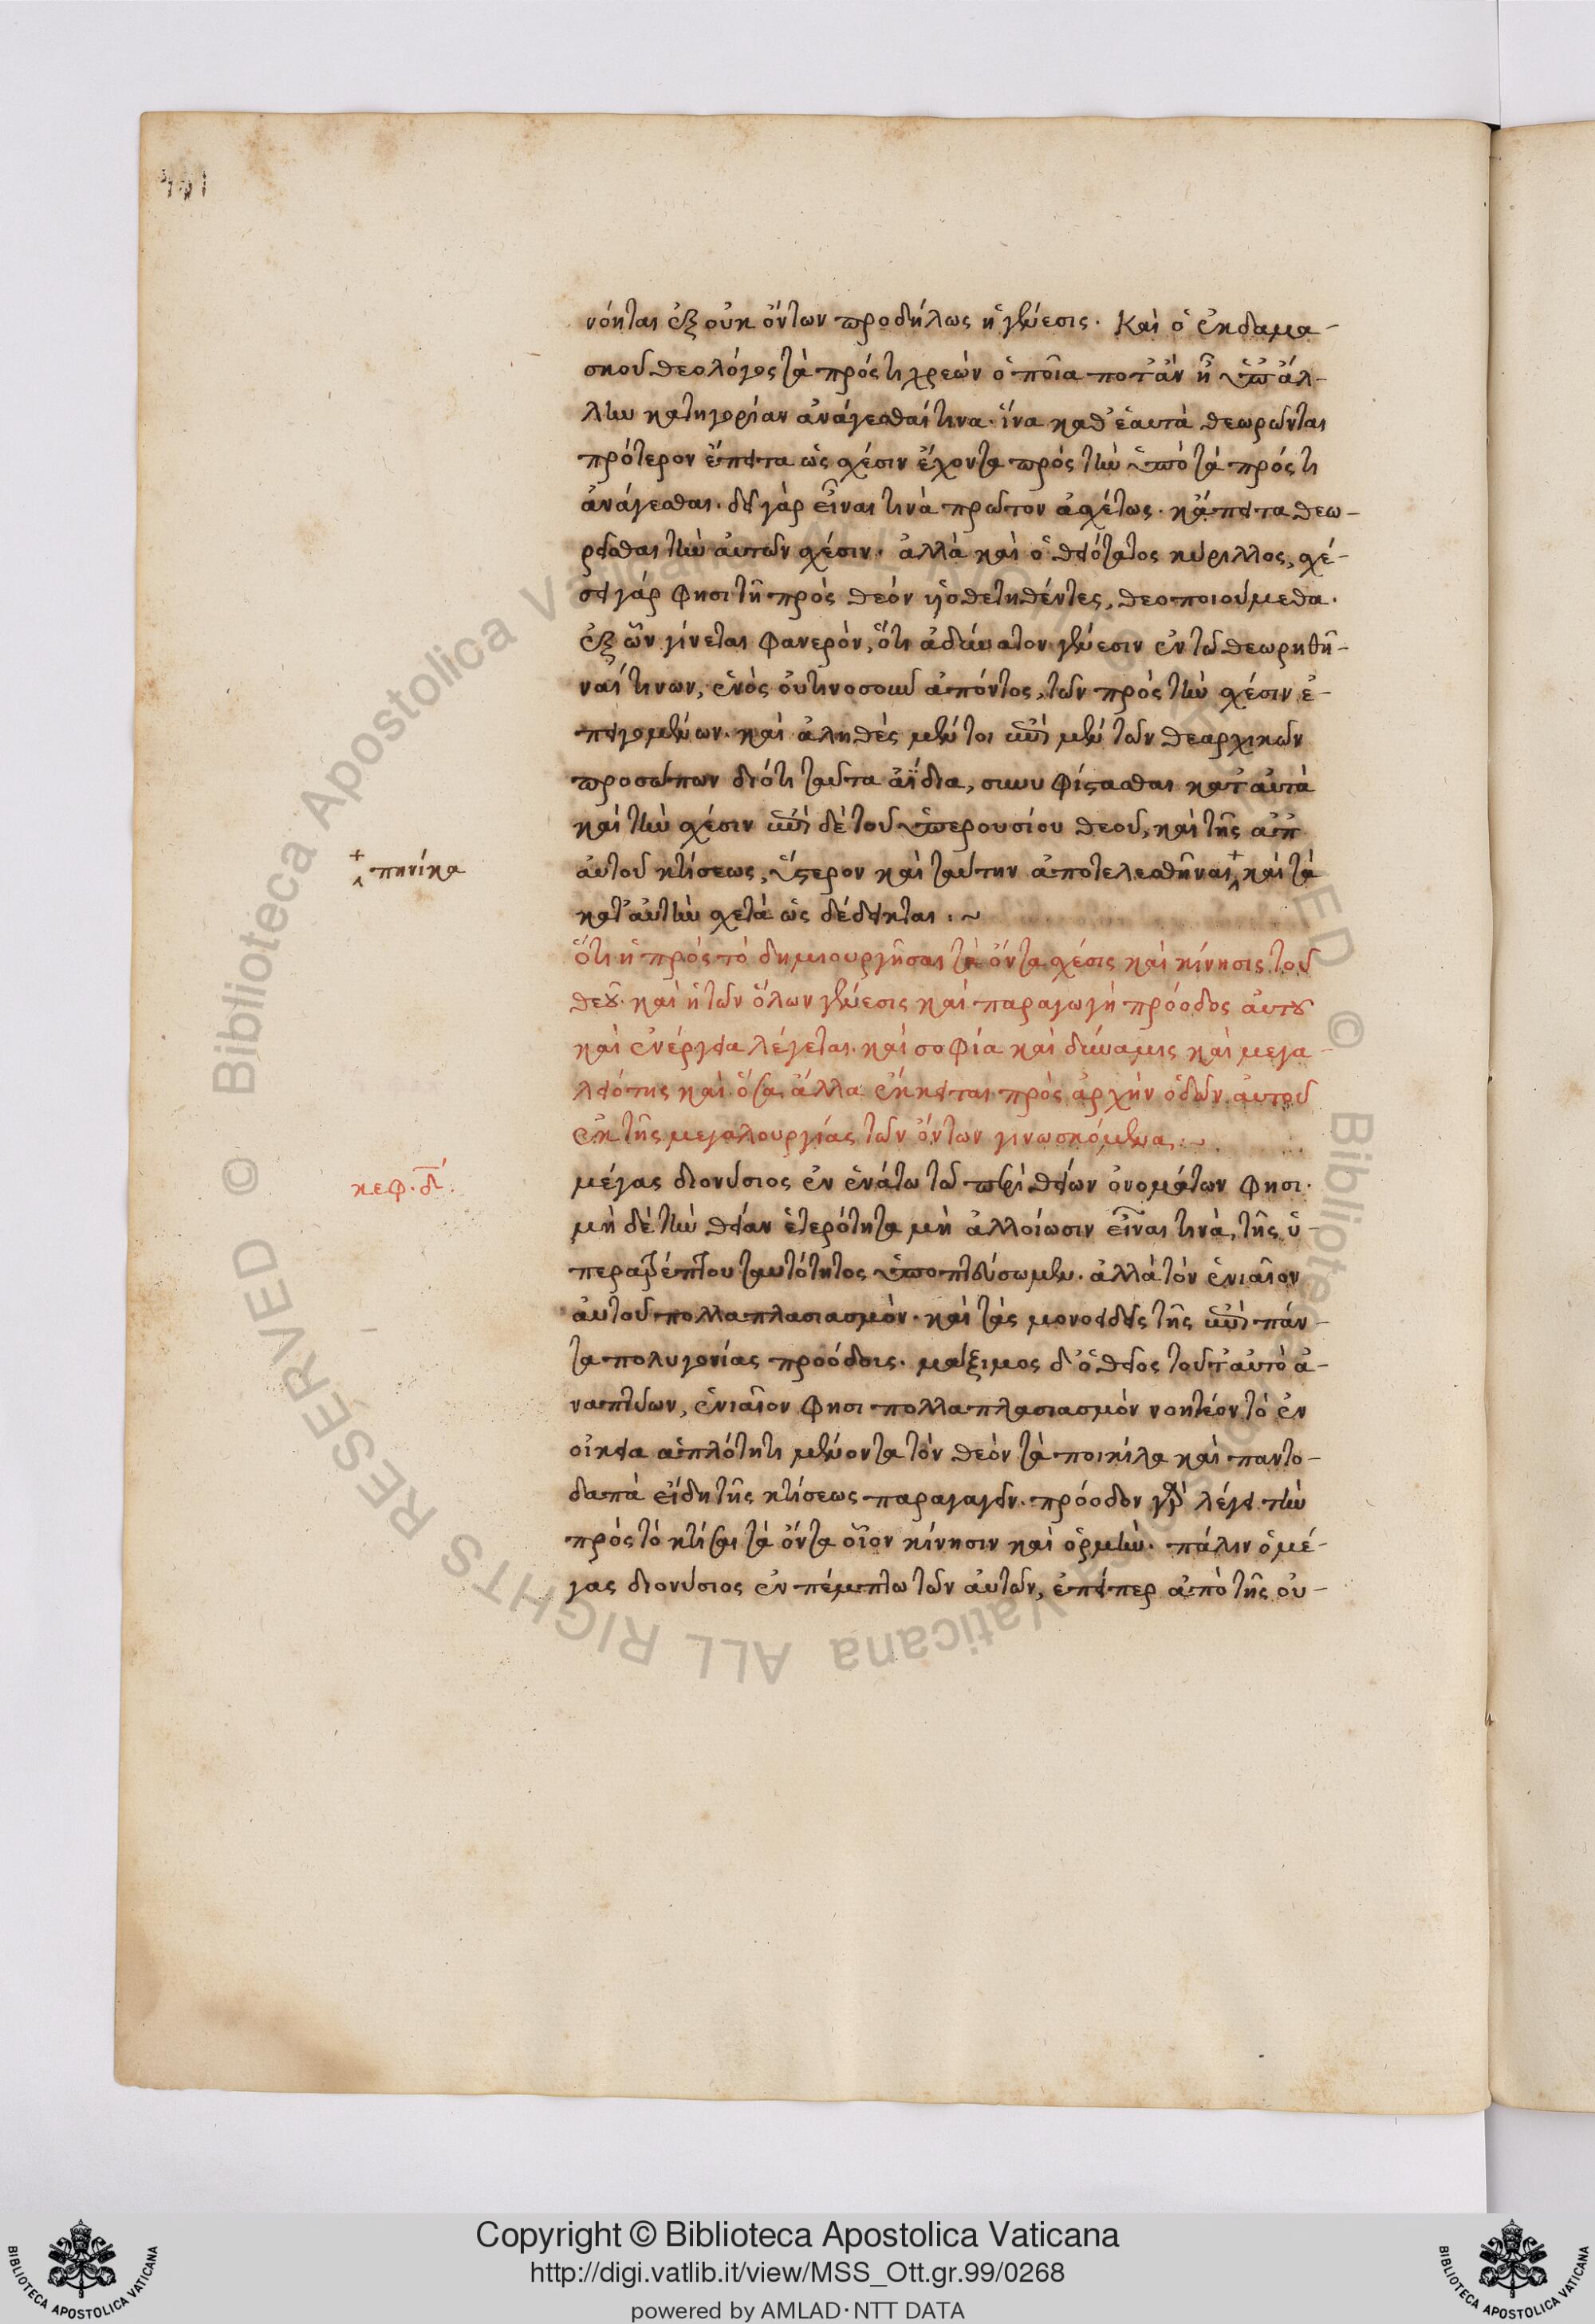 νόηται ἐξ οὐκ ὄντων προδήλως ἡ γένεσις. Καὶ ὁ ἐκ δαμα-
σκοῦ θεολόγος τὰ πρός τι χρεὼν ὁποῖα ποτ' ἂν ἢ ὑπ' ἄλ-
λην κατηγορίαν ἀνάγεσθαί τινα. ἵνα καθ' ἑαυτὰ θεωρῶνται
πρότερον ἔπειτα ὡς σχέσιν ἔχοντα πρὸς τὴν ὑπὸ τὰ πρός τι
ἀνάγεσθαι. δεῖ γὰρ εἶναι τινὰ πρῶτον ἀσχέτως. κἄπειτα θεω-
ρεῖσθαι τὴν αὐτῶν σχέσιν. ἀλλὰ καὶ ὁ θειότατος κύριλλος, σχέ-
σει γάρ φησι τῇ πρὸς θεὸν υἱοθετηθέντες, θεοποιούμεθα.
ἐξ ὧν γίνεται φανερὸν, ὅτι ἀδύνατον γένεσιν ἐν τῷ θεωρηθῆ-
ναί τινων, ἑνὸς οὑτινοσοῦν ἀπόντος, τῶν πρὸς τὴν σχέσιν ἐ-
πειγομένων. καὶ ἀληθές μέν τοι ἐπὶ μὲν τῶν θεαρχικῶν
προσώπων διότι ταῦτα ἀΐδια, συνυφίστασθαι κατ' αὐτὰ
καὶ τὴν σχέσιν ἐπὶ δὲ τοῦ ὑπερουσίου θεοῦ, καὶ τῆς ἀπ'
αὐτοῦ κτίσεως, ὕστερον καὶ ταύτην ἀποτελεσθῆναι, καὶ τὰ
πηνίκα
κατ' αὐτὴν σχετὰ ὡς δέδεικται. ~
ὅτι ἡ πρὸς τὸ δημιουργῆσαι τὰ ὄντα σχέσις καὶ κίνησις τοῦ
θεοῦ. καὶ ἡ τῶν ὅλων γένεσις καὶ παραγωγὴ πρόοδος αὐτοῦ
καὶ ἐνέργεια λέγεται. καὶ σοφία καὶ δύναμις καὶ μεγα-
λειότης καὶ ὅσα ἄλλα ἔκκειται πρὸς ἀρχὴν ὁδῶν αὐτοῦ
ἐκ τῆς μεγαλουργίας τῶν ὄντων γινωσκόμενα. ~
κεφ. δ'.
μέγας διονύσιος ἐν ἐνάτῳ τῷ περὶ θείων ὀνομάτων φησι.
μὴ δὲ τὴν θείαν ἑτερότητα μὴ ἀλλοίωσιν εἶναι τινὰ, τῆς ὑ-
περατρέπτου ταυτότητος ὑποπτεύσωμεν. ἀλλὰ τὸν ἑνιαῖον
αὐτοῦ πολλαπλασιασμὸν. καὶ τὰς μονοειδεῖς τῆς ἐπὶ πάν-
τα πολυγονίας προόδοις. μάξιμος δ' ὁ θεῖος τοῦτ' αὐτὸ ἀ-
ναπτύων, ἑνιαῖον φησι πολλαπλασιασμὸν νοητέον τὸ ἐν
οἰκεία ἁπλότητι μένοντα τὸν θεὸν τὰ ποικίλα καὶ παντο-
δαπὰ εἴδη τῆς κτίσεως παραγαγεῖν. πρόοδον γὰρ λέγει τὴν
πρὸς τὸ κτίσαι τὰ ὄντα οἷον κίνησιν καὶ ὁρμὴν. πάλιν ὁ μέ-
γας διονύσιος ἐν πέμπτῳ τῶν αὐτῶν, ἐπείπερ ἀπὸ τῆς οὐ-
Copyright © Biblioteca Apostolica Vaticana
http://digi.vatlib.it/view/MSS_Ott.gr.99/0268
powered by AMLAD·NTT DATA